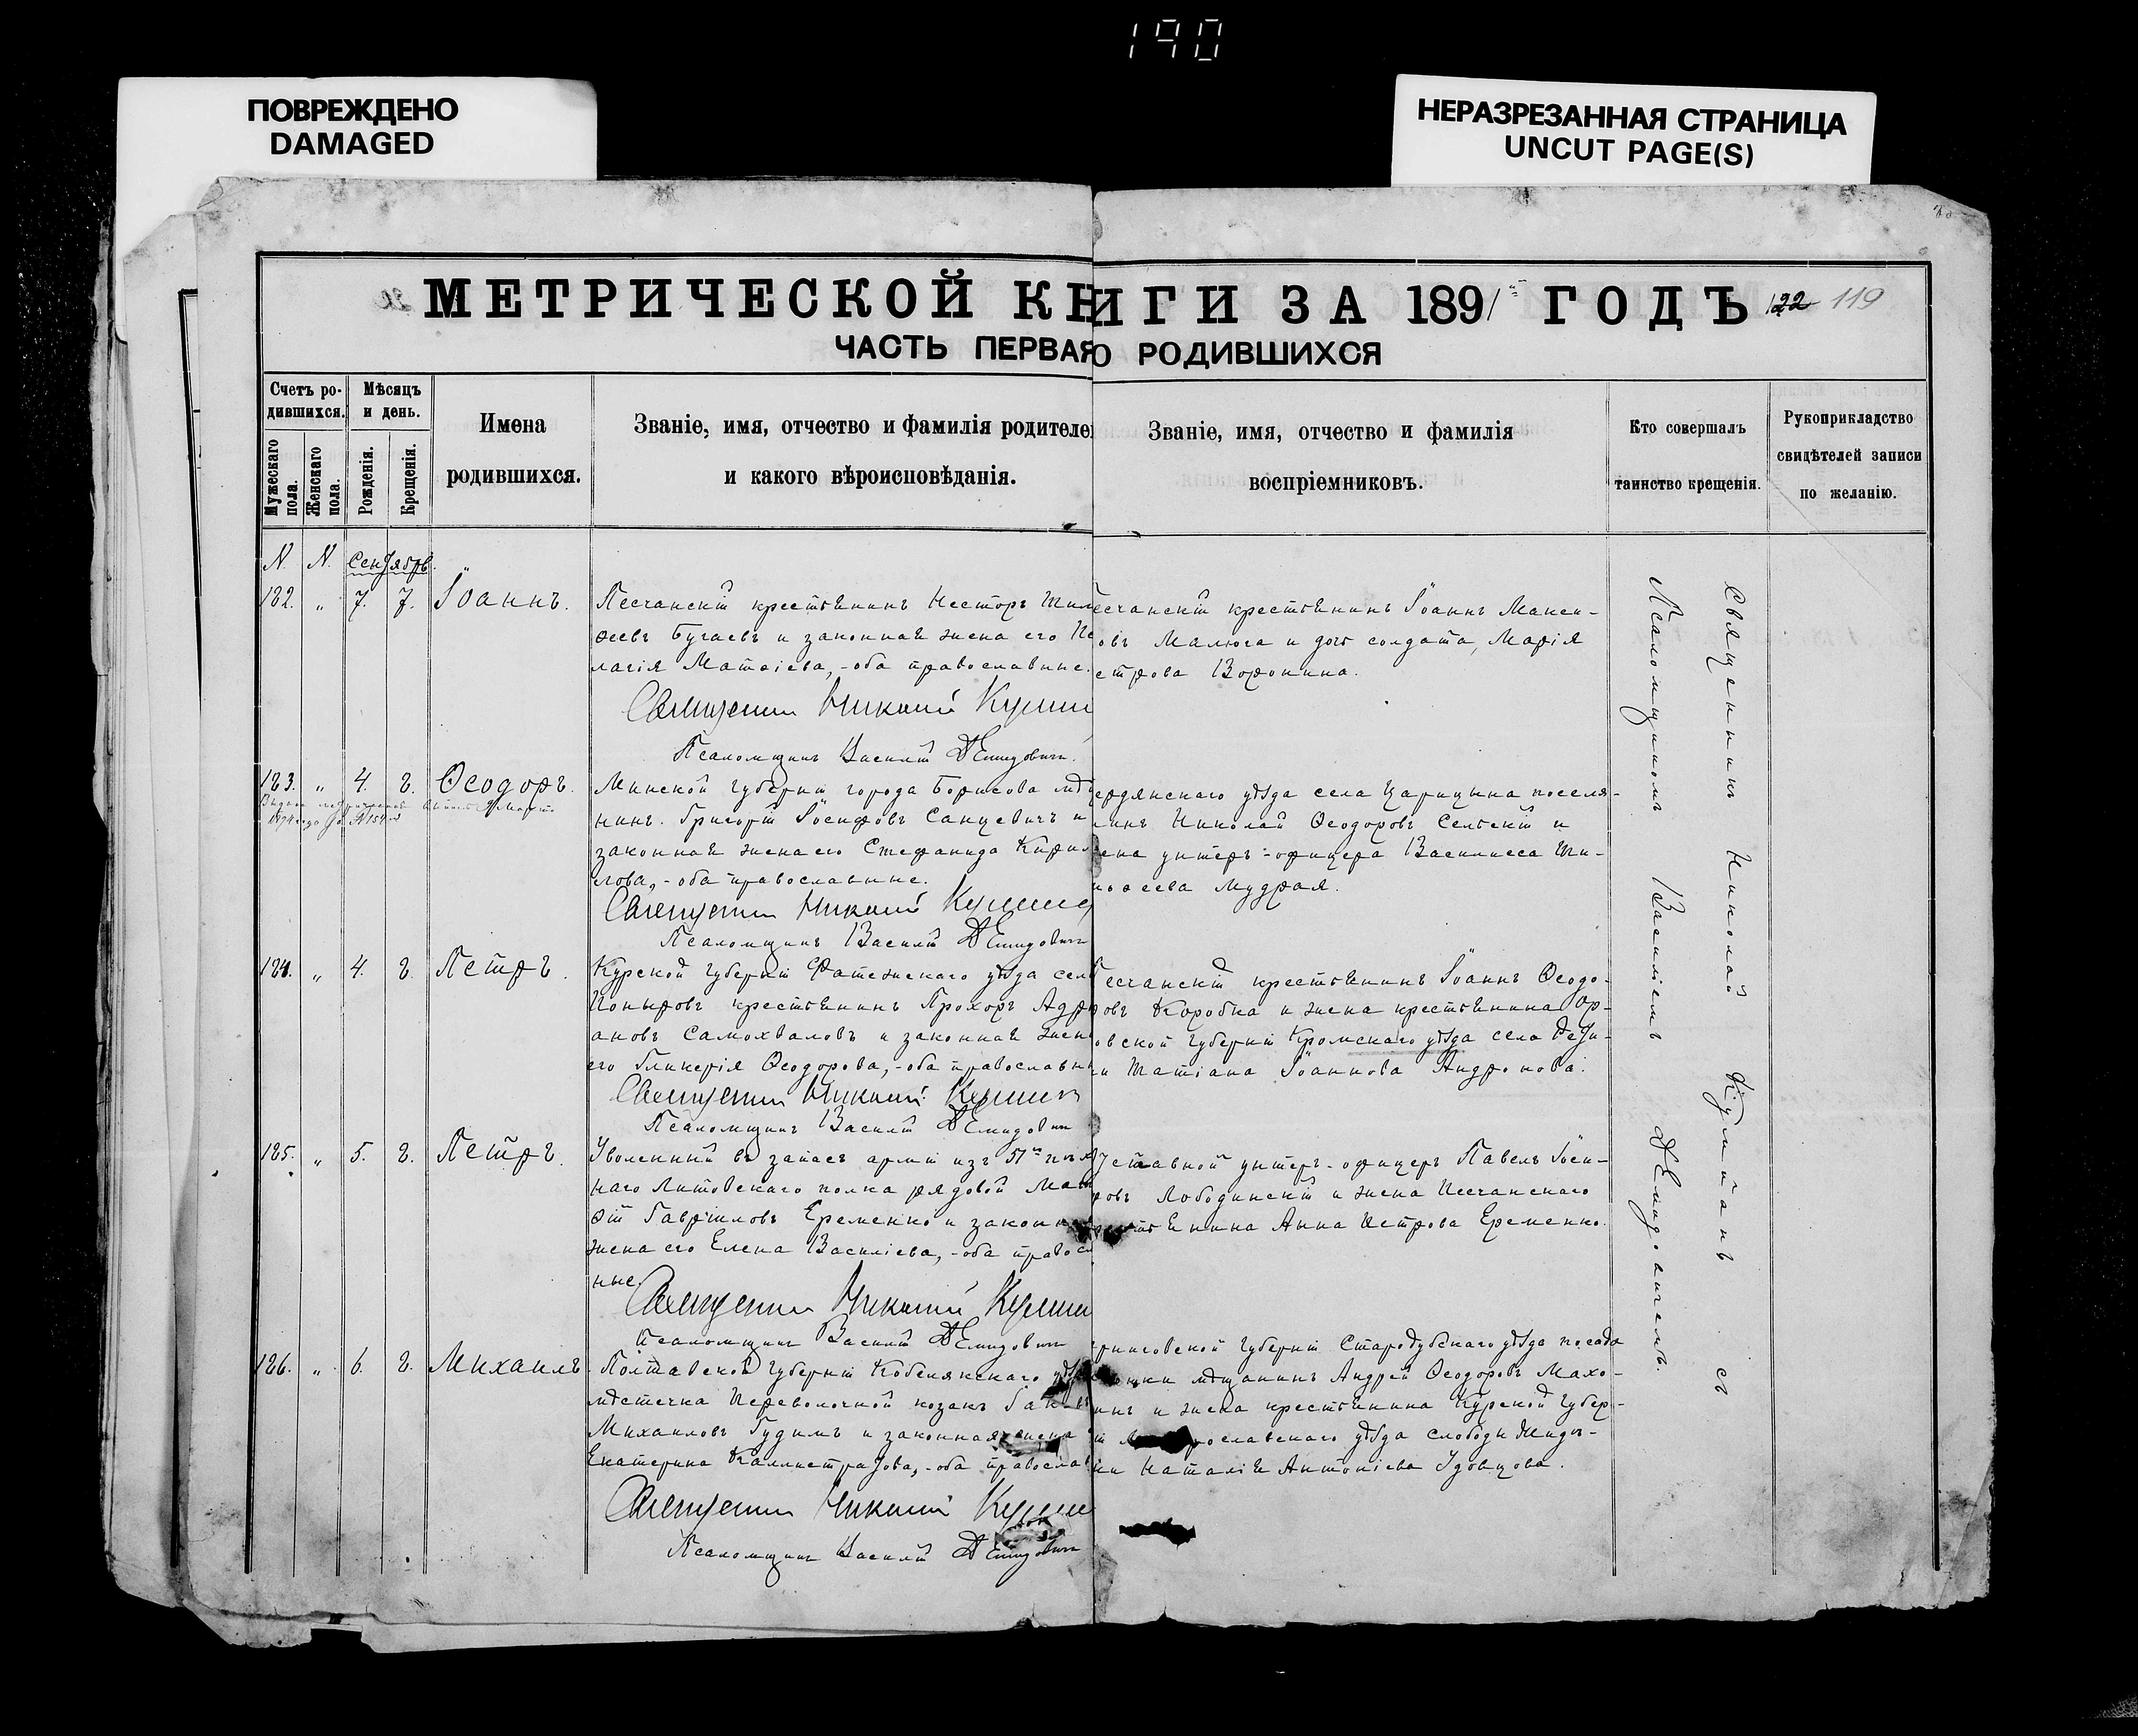 190
ПОВРЕЖДЕНО
DAMAGED
НЕРАЗРЕЗАННАЯ СТРАНИЦА
UNCUT PAGE(S)
МЕТРИЧЕСКОЙ КНИГИ ЗА 1891 ГОДЪ 122 119
ЧАСТЬ ПЕРВАЯ О РОДИВШИХСЯ
Счетъ ро-
дившихся.
Мужескаго пола.
Женскаго пола.
Мѣсяцъ
и день.
Рожденія.
Крещенія.
Имена
родившихся.
Званіе, имя, отчество и фамилія родителе
и какого вѣроисповѣданія.
Званіе, имя, отчество и фамилія
воспріемниковъ.
Кто совершалъ
таинство крещенія.
Рукоприкладство
свидѣтелей записи
по желанію.
N. N. Сентябрь
182. " 7. 7. Іоаннъ.
Песчанскій крестьянинъ Несторъ Тим
ѳеевъ Бугаевъ и законная жена его Пе
лагія Матѳіева,-оба православные.
Священникъ Николай
Псаломщикъ Василій Демидовичъ
есчанскій крестьянинъ Іоаннъ Макси-
овъ Малюга и дочь солдата, Марія
етрова Воронина.
183. " 4. 8. Ѳеодоръ.
Минской губерніи города Борисова мѣщ
нинъ Григорій Іосифовъ Санцевичъ и
законная жена его Стефанида Кирил
лова,-оба православные.
Священникъ Николай
Псаломщикъ Василій Демидовичъ
ердянскаго уѣзда села Царицына поселя-
нинъ Николай Ѳеодоровъ Сельскій и
ена унтеръ-офицера Василисса Ти-
моѳеева Мудрая.
184. " 4. 8. Петръ.
Курской губерніи Фатежскаго уѣзда сел
Поныровъ крестьянинъ Прохоръ Адрі
ановъ Самохваловъ и законная жена
его Гликерія Ѳеодорова,-оба православн
Священникъ Николай
Псаломщикъ Василій Демидовичъ
есчанскій крестьянинъ Іоаннъ Ѳеодо-
ровъ Коробка и жена крестьянина Ор-
овской губерніи Кромскаго уѣзда села
Татіана Іоаннова Андронова.
185. " 5. 8. Петръ.
Уволенный въ запасъ арміи изъ 51го пѣх
наго Литовскаго полка рядовой Мат
ѳій Гавріиловъ Еременко и законная
жена его Елена Василіева,-оба правосл
ные.
Священникъ Николай
Псаломщикъ Василій Демидовичъ
тставной унтеръ-офицеръ Павелъ Іоси-
фовъ Лободинскій и жена Песчанскаго
крестьянина Анна Петрова Еременко.
186. " 6. 8. Михаилъ
Полтавской губерніи Кобелякскаго уѣз
мѣстечка Переволочной козакъ
Михаиловъ Гудимъ и законная жена
Екатерина Каллистратова,-оба православ
Священникъ Николай
Псаломщикъ Василій Демидовичъ
ерниговской губерніи Стародубскаго уѣзда посада
мѣщанинъ Андрей Ѳеодоровъ Махо-
инъ и жена крестьянина Курской губер-
рославскаго уѣзда слободы
Наталія Антоніева Удовцова.
Священникъ Николай съ
Псаломщикомъ Василіемъ Демидовичемъ.